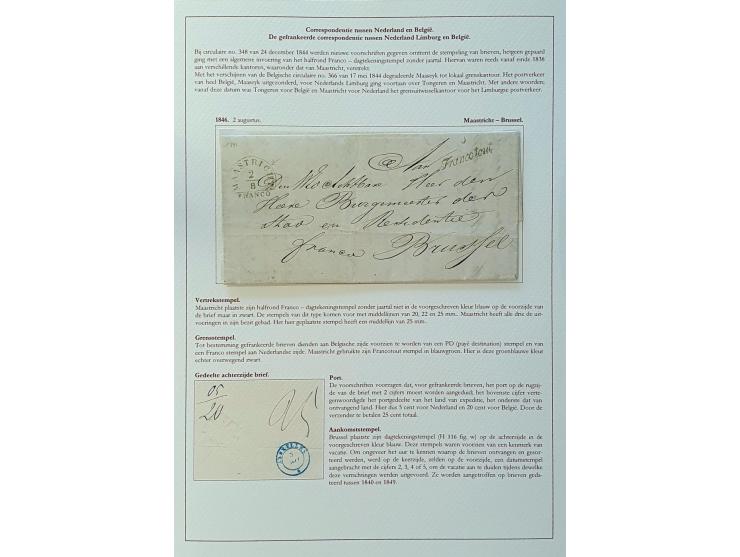 Correspondentie tussen Nederland en België.
De gefrankeerde correspondentie tussen Nederland Limburg en België.
Bij circulaire no. 348 van 24 december 1844 werden nieuwe voorschriften gegeven omtrent de stempeling van brieven, hetgeen gepaard
ging met een algemene invoering van het halfrond Franco – dagtekeningstempel zonder jaartal. Hiervan waren reeds vanaf einde 1836
aan verschillende kantoren, waaronder dat van Maastricht, verstrekt.
Met het verschijnen van de Belgische circulaire no. 366 van 17 mei 1844 degradeerde Maaseyk tot lokaal grenskantoor. Het postverkeer
van heel België, Maaseyk uitgezonderd, voor Nederlands Limburg ging voortaan over Tongeren en Maastricht. Met andere woorden;
vanaf deze datum was Tongeren voor België en Maastricht voor Nederland het grensuitwisselkantoor voor het Limburgse postverkeer.
1846. 2 augustus. Maastricht – Brussel.
MAASTRICHT
2
8
FRANCO
Aan Francotout
Den Heer den
Heere Burgemeester der
Stad en Residentie
franco Brussel
Vertrekstempel.
Maastricht plaatste zijn halfrond Franco – dagtekeningstempel zonder jaartal niet in de voorgeschreven kleur blauw op de voorzijde van
de brief maar in zwart. De stempels van dit type komen voor met middellijnen van 20, 22 en 25 mm.. Maastricht heeft alle drie de uit-
voeringen in zijn bezit gehad. Het hier geplaatste stempel heeft een middellijn van 25 mm.
Grensstempel.
Tot bestemming gefrankeerde brieven dienden aan Belgische zijde voorzien te worden van een PD (payé destination) stempel en van
een Franco stempel aan Nederlandse zijde. Maastricht gebruikte zijn Francotout stempel in blauwgroen. Hier is deze groenblauwe kleur
echter overwegend zwart.
Gedeelte achterzijde brief.
05
20
25
Port.
De voorschriften voorzagen dat, voor gefrankeerde brieven, het port op de rugzij-
de van de brief met 2 cijfers moest worden aangeduid; het bovenste cijfer verte-
genwoordigde het portgedeelte van het land van expeditie, het onderste dat van
ontvangend land. Hier dus 5 cent voor Nederland en 20 cent voor België. Door de
verzender te betalen 25 cent totaal.
Aankomststempel.
Brussel plaatste zijn dagtekeningstempel (H 116 fig. w) op de achterzijde in de
voorgeschreven kleur blauw. Deze stempels waren voorzien van een kenmerk van
vacatie. Om ongeveer het uur te kennen waarop de brieven ontvangen en gesor-
teerd werden, werd op de keerzijde, zelden op de voorzijde, een datumstempel
aangebracht met de cijfers 2, 3, 4 of 5, om de vacatie aan te duiden tijdens dewelke
deze verrichtingen werden uitgevoerd. Ze worden aangetroffen op brieven geda-
teerd tussen 1840 en 1849.